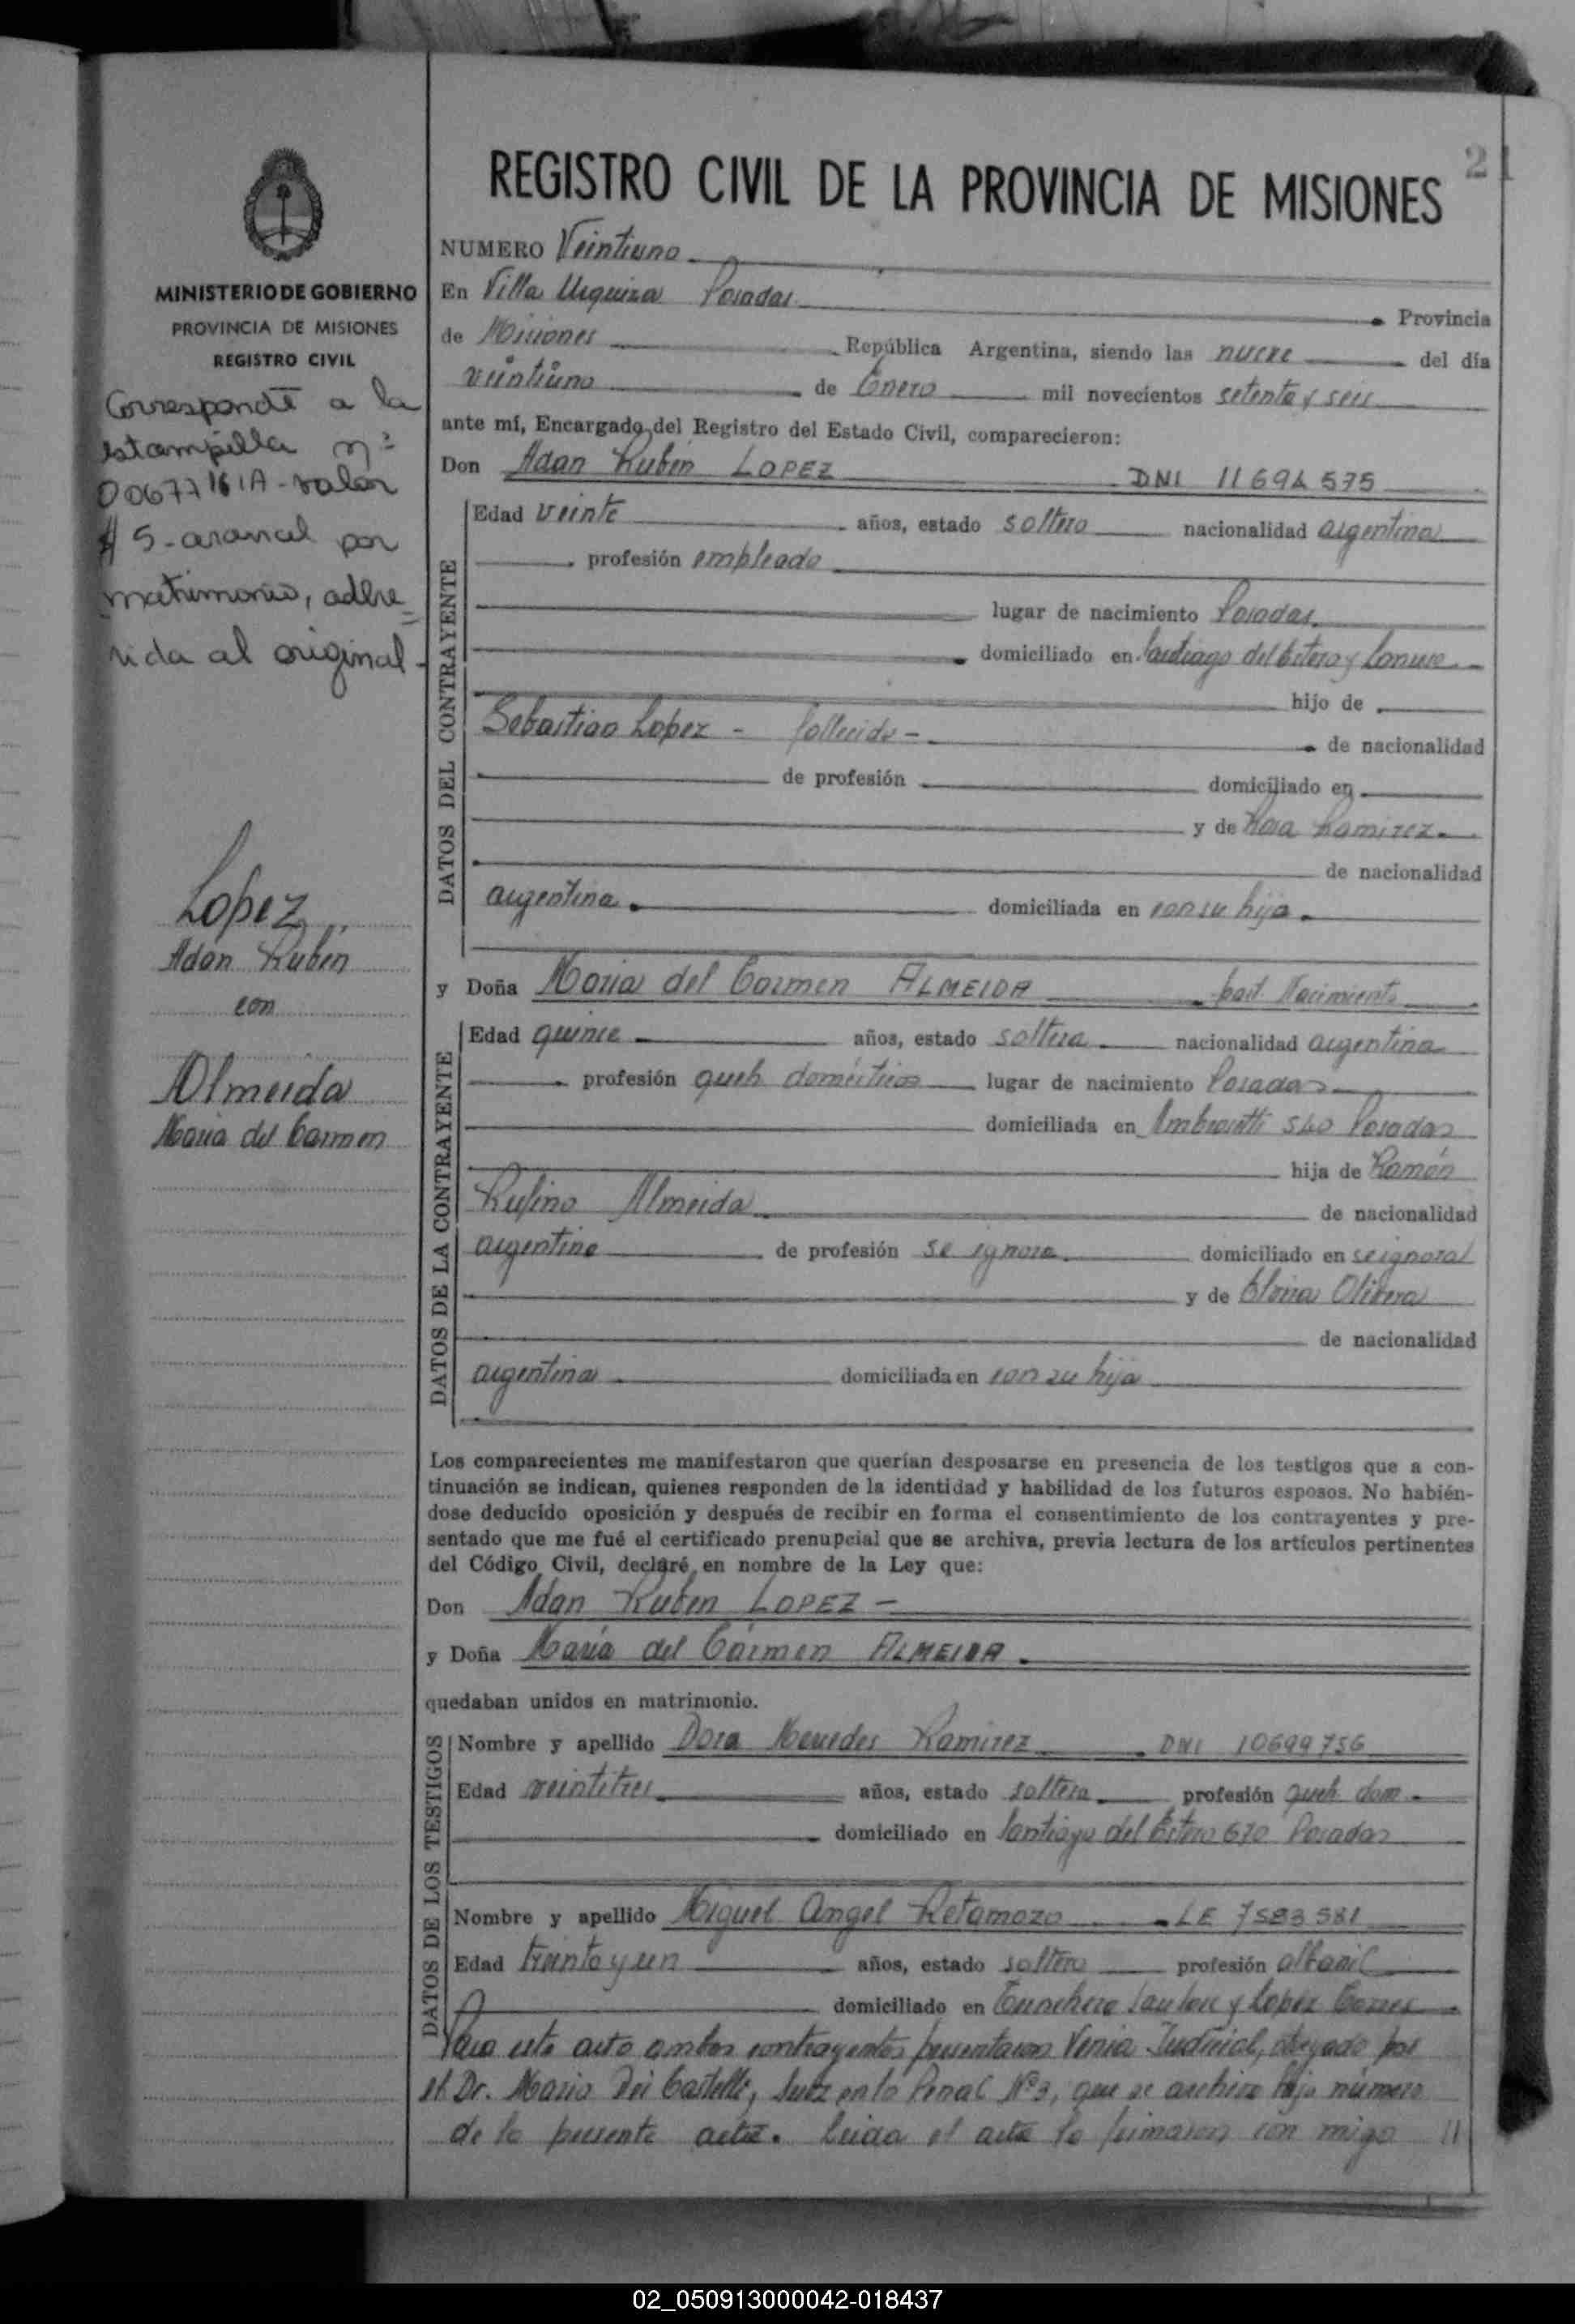 21
REGISTRO CIVIL DE LA PROVINCIA DE MISIONES
MINISTERIO DE GOBIERNO
PROVINCIA DE MISIONES
REGISTRO CIVIL
Corresponde a la
estampilla nº
0067716 1A - valor
$ 5 - arancel por
matrimonio, adhe-
rida al original -
Lopez
Adan Rubén
con
Almeida
Maria del Carmen
NUMERO Veintiuno
En Villa Urquiza Posadas Provincia
de Misiones República Argentina, siendo las nueve del día
veintiuno de Enero mil novecientos setenta y seis
ante mí, Encargado del Registro del Estado Civil, comparecieron:
Don Adan Rubén LOPEZ DNI 11694575
DATOS DEL CONTRAYENTE
Edad veinte años, estado soltero nacionalidad argentina
profesión empleado
lugar de nacimiento Posadas
domiciliado en Santiago del Estero y
hijo de
Sebastiao Lopez - fallecido - de nacionalidad
de profesión domiciliado en
y de Rosa Ramirez
de nacionalidad
argentina domiciliada en con su hijo
y Doña Maria del Carmen ALMEIDA part. Nacimiento
DATOS DE LA CONTRAYENTE
Edad quince años, estado soltera nacionalidad argentina
profesión queh domésticos lugar de nacimiento Posadas
domiciliada en 540 Posadas
hija de Ramón
Rufino Almeida de nacionalidad
argentino de profesión se ignora domiciliado en se ignora
y de Olivera
de nacionalidad
argentina domiciliada en con su hija
Los comparecientes me manifestaron que querían desposarse en presencia de los testigos que a con-
tinuación se indican, quienes responden de la identidad y habilidad de los futuros esposos. No habién-
dose deducido oposición y después de recibir en forma el consentimiento de los contrayentes y pre-
sentado que me fué el certificado prenupcial que se archiva, previa lectura de los artículos pertinentes
del Código Civil, declaré en nombre de la Ley que:
Don Adan Rubén LOPEZ -
y Doña María del Cármen ALMEIDA
quedaban unidos en matrimonio.
DATOS DE LOS TESTIGOS
Nombre y apellido Dora Mercedes Ramirez DNI 10699756
Edad veintitres años, estado soltera profesión queh dom
domiciliado en Santiago del Estero 670 Posadas
Nombre y apellido Miguel Angel Retamozo LE 7583581
Edad treinta y un años, estado soltero profesión albañil
domiciliado en y Lopez Torres
Para este acto ambos contrayentes presentaron Venia Judicial, otorgado por
el Dr. Mario Dei Castelli, Juez en lo Penal Nº3, que se archiva bajo número
de la presente acta. Leida el acta la firmaron con migo //
02_050913000042-018437